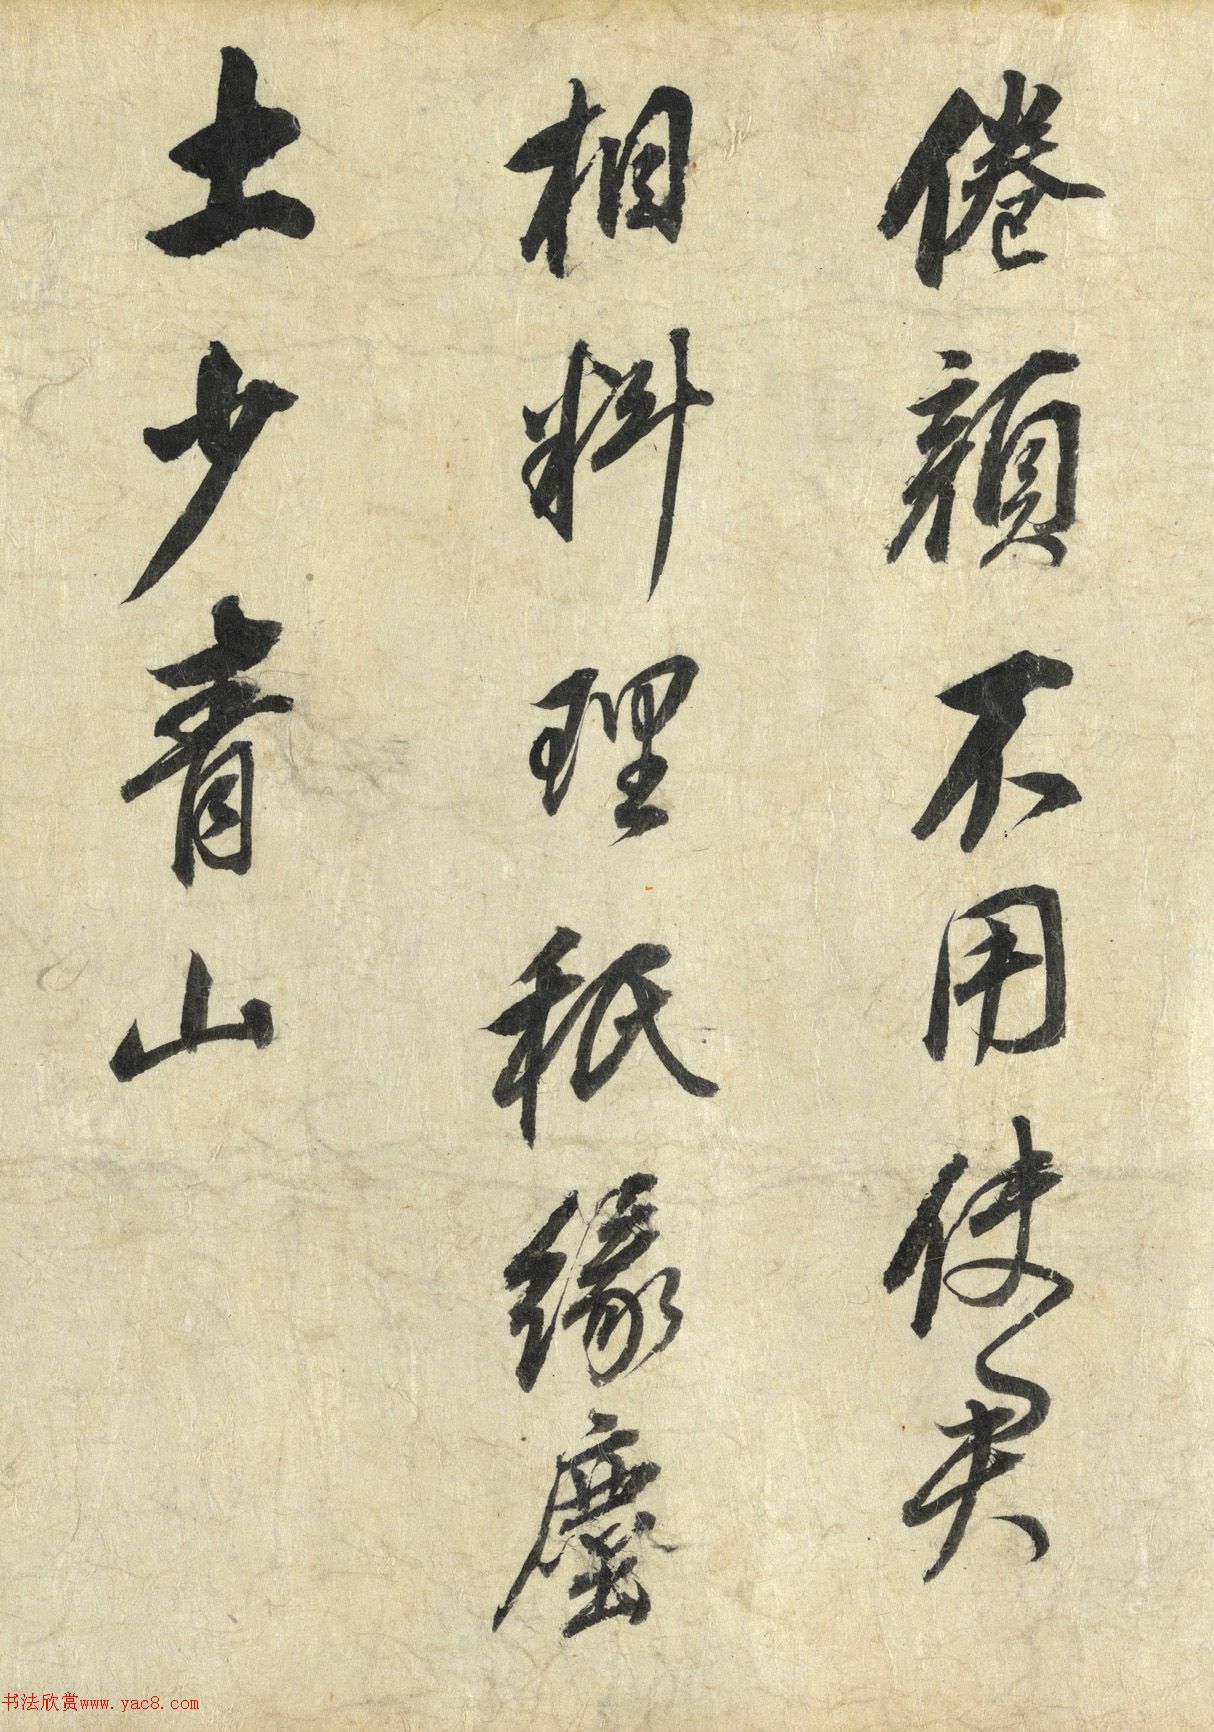 倦顔不用使君
相料理秖緣塵
土少青山
书法欣赏www.yac8.com